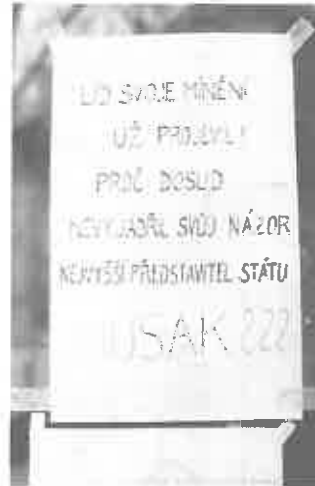 LID SVOJE MÍNĚNÍ
UŽ PROJEVIL!
PROČ DOSUD
NEVYJÁDŘIL SVŮJ NÁZOR
NEJVYŠŠÍ PŘEDSTAVITEL STÁTU
HUSÁK ???